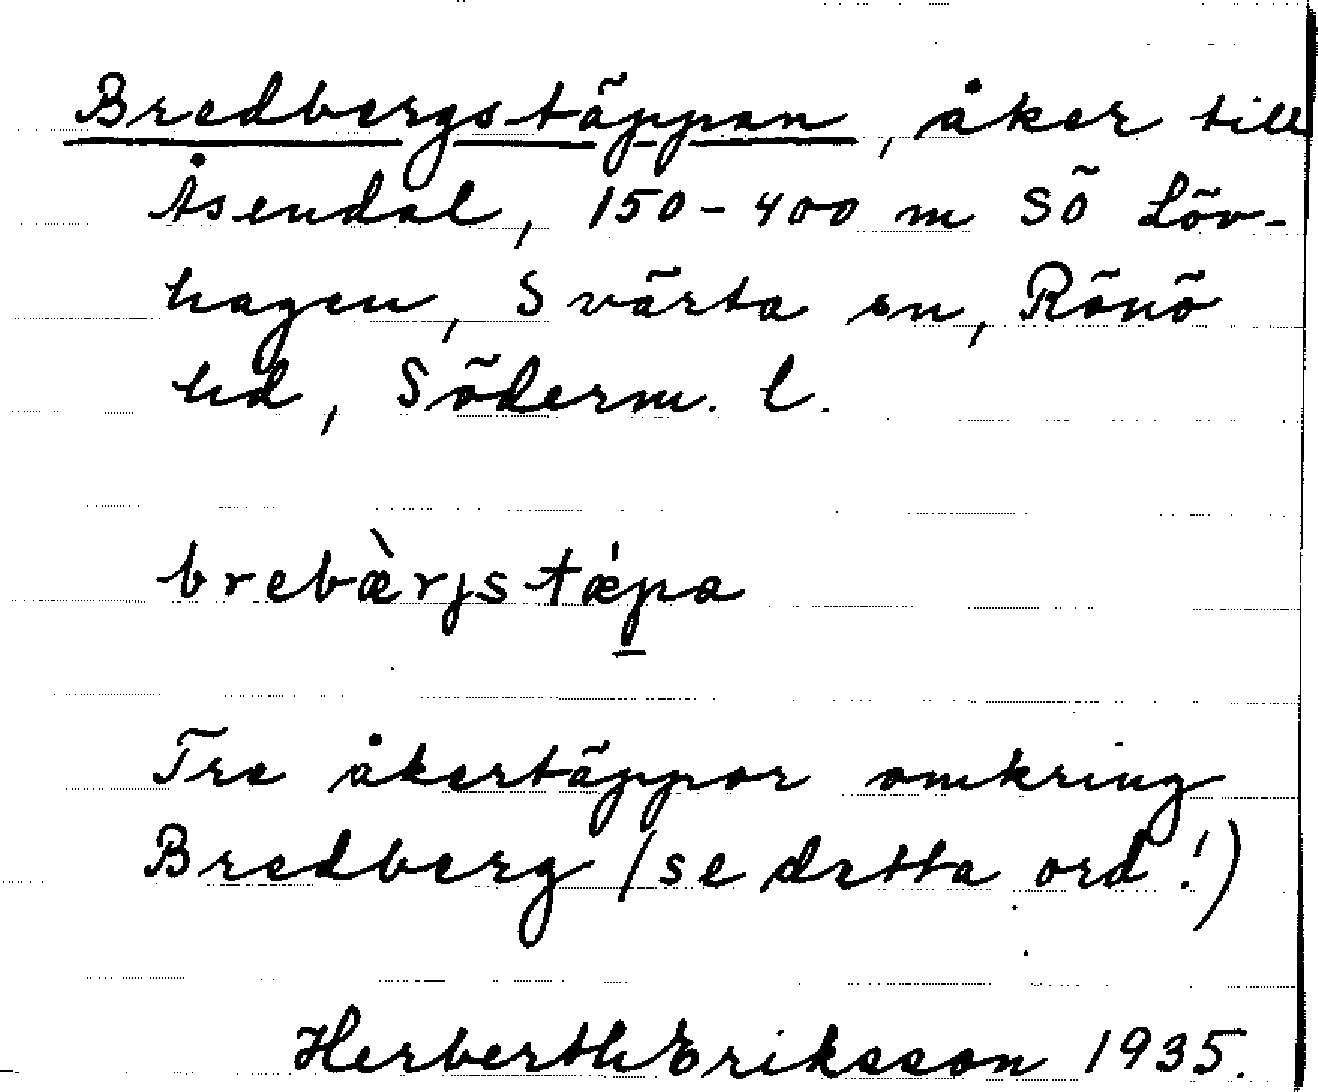 Bredbergstäppan, åker till
Åsendal, 150-400 m SÖ Löv-
hagen, Svärta sn, Rönö
hd, Söderm. l.
brebæ̀rjstǽp̲a
Tre åkertäppor omkring
Bredberg (se detta ord!)
Herberth Eriksson 1935.